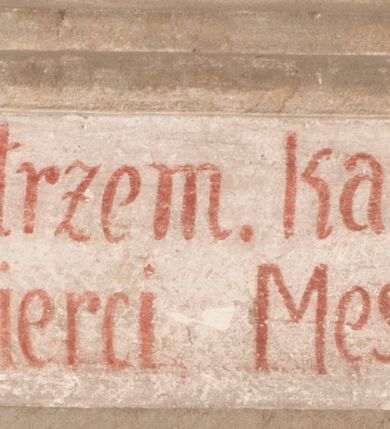 trzem. Ka
ierci Mes